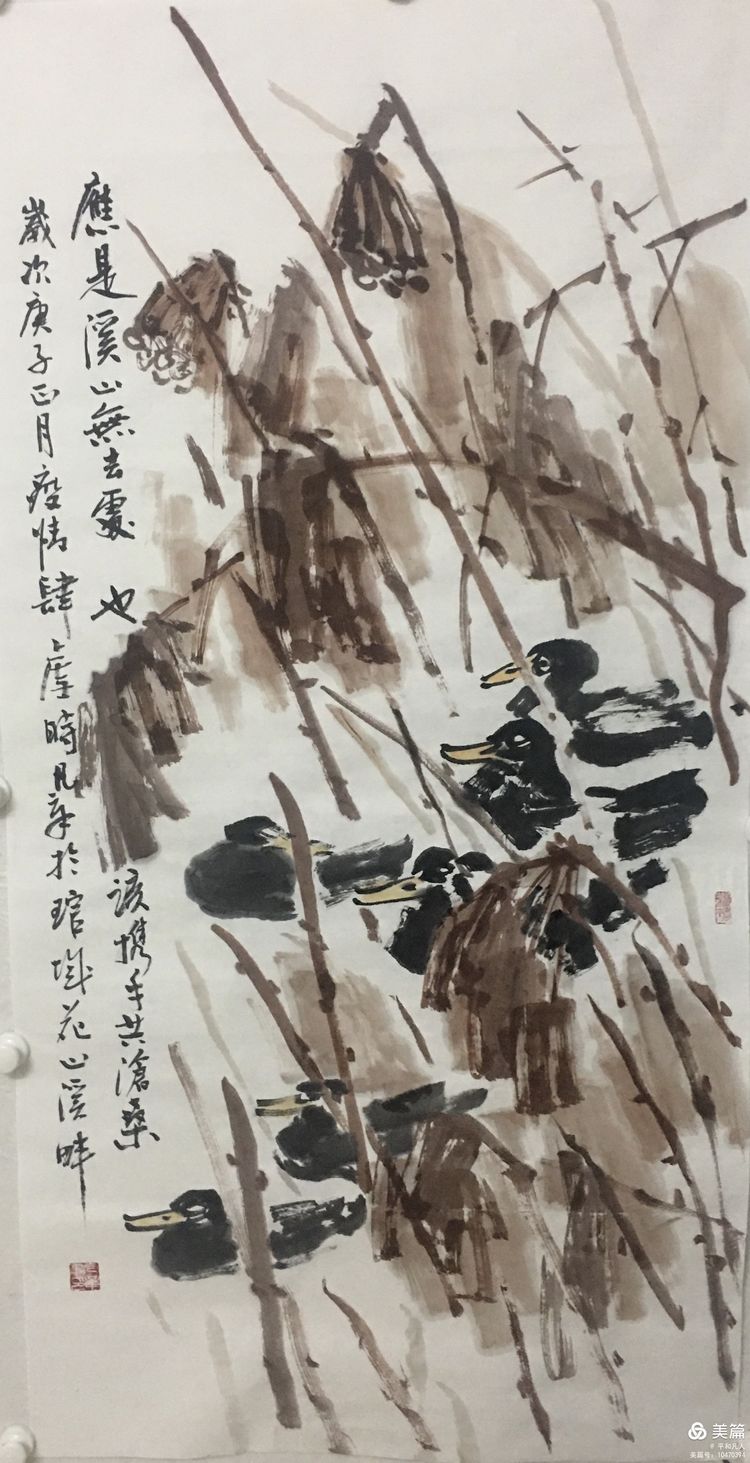 應是溪山無去處 也
該攜手共滄桑
歲次庚子正月疫情肆虐時凡辛於琯城花山溪畔
美篇
平和凡人
美篇号：10470394